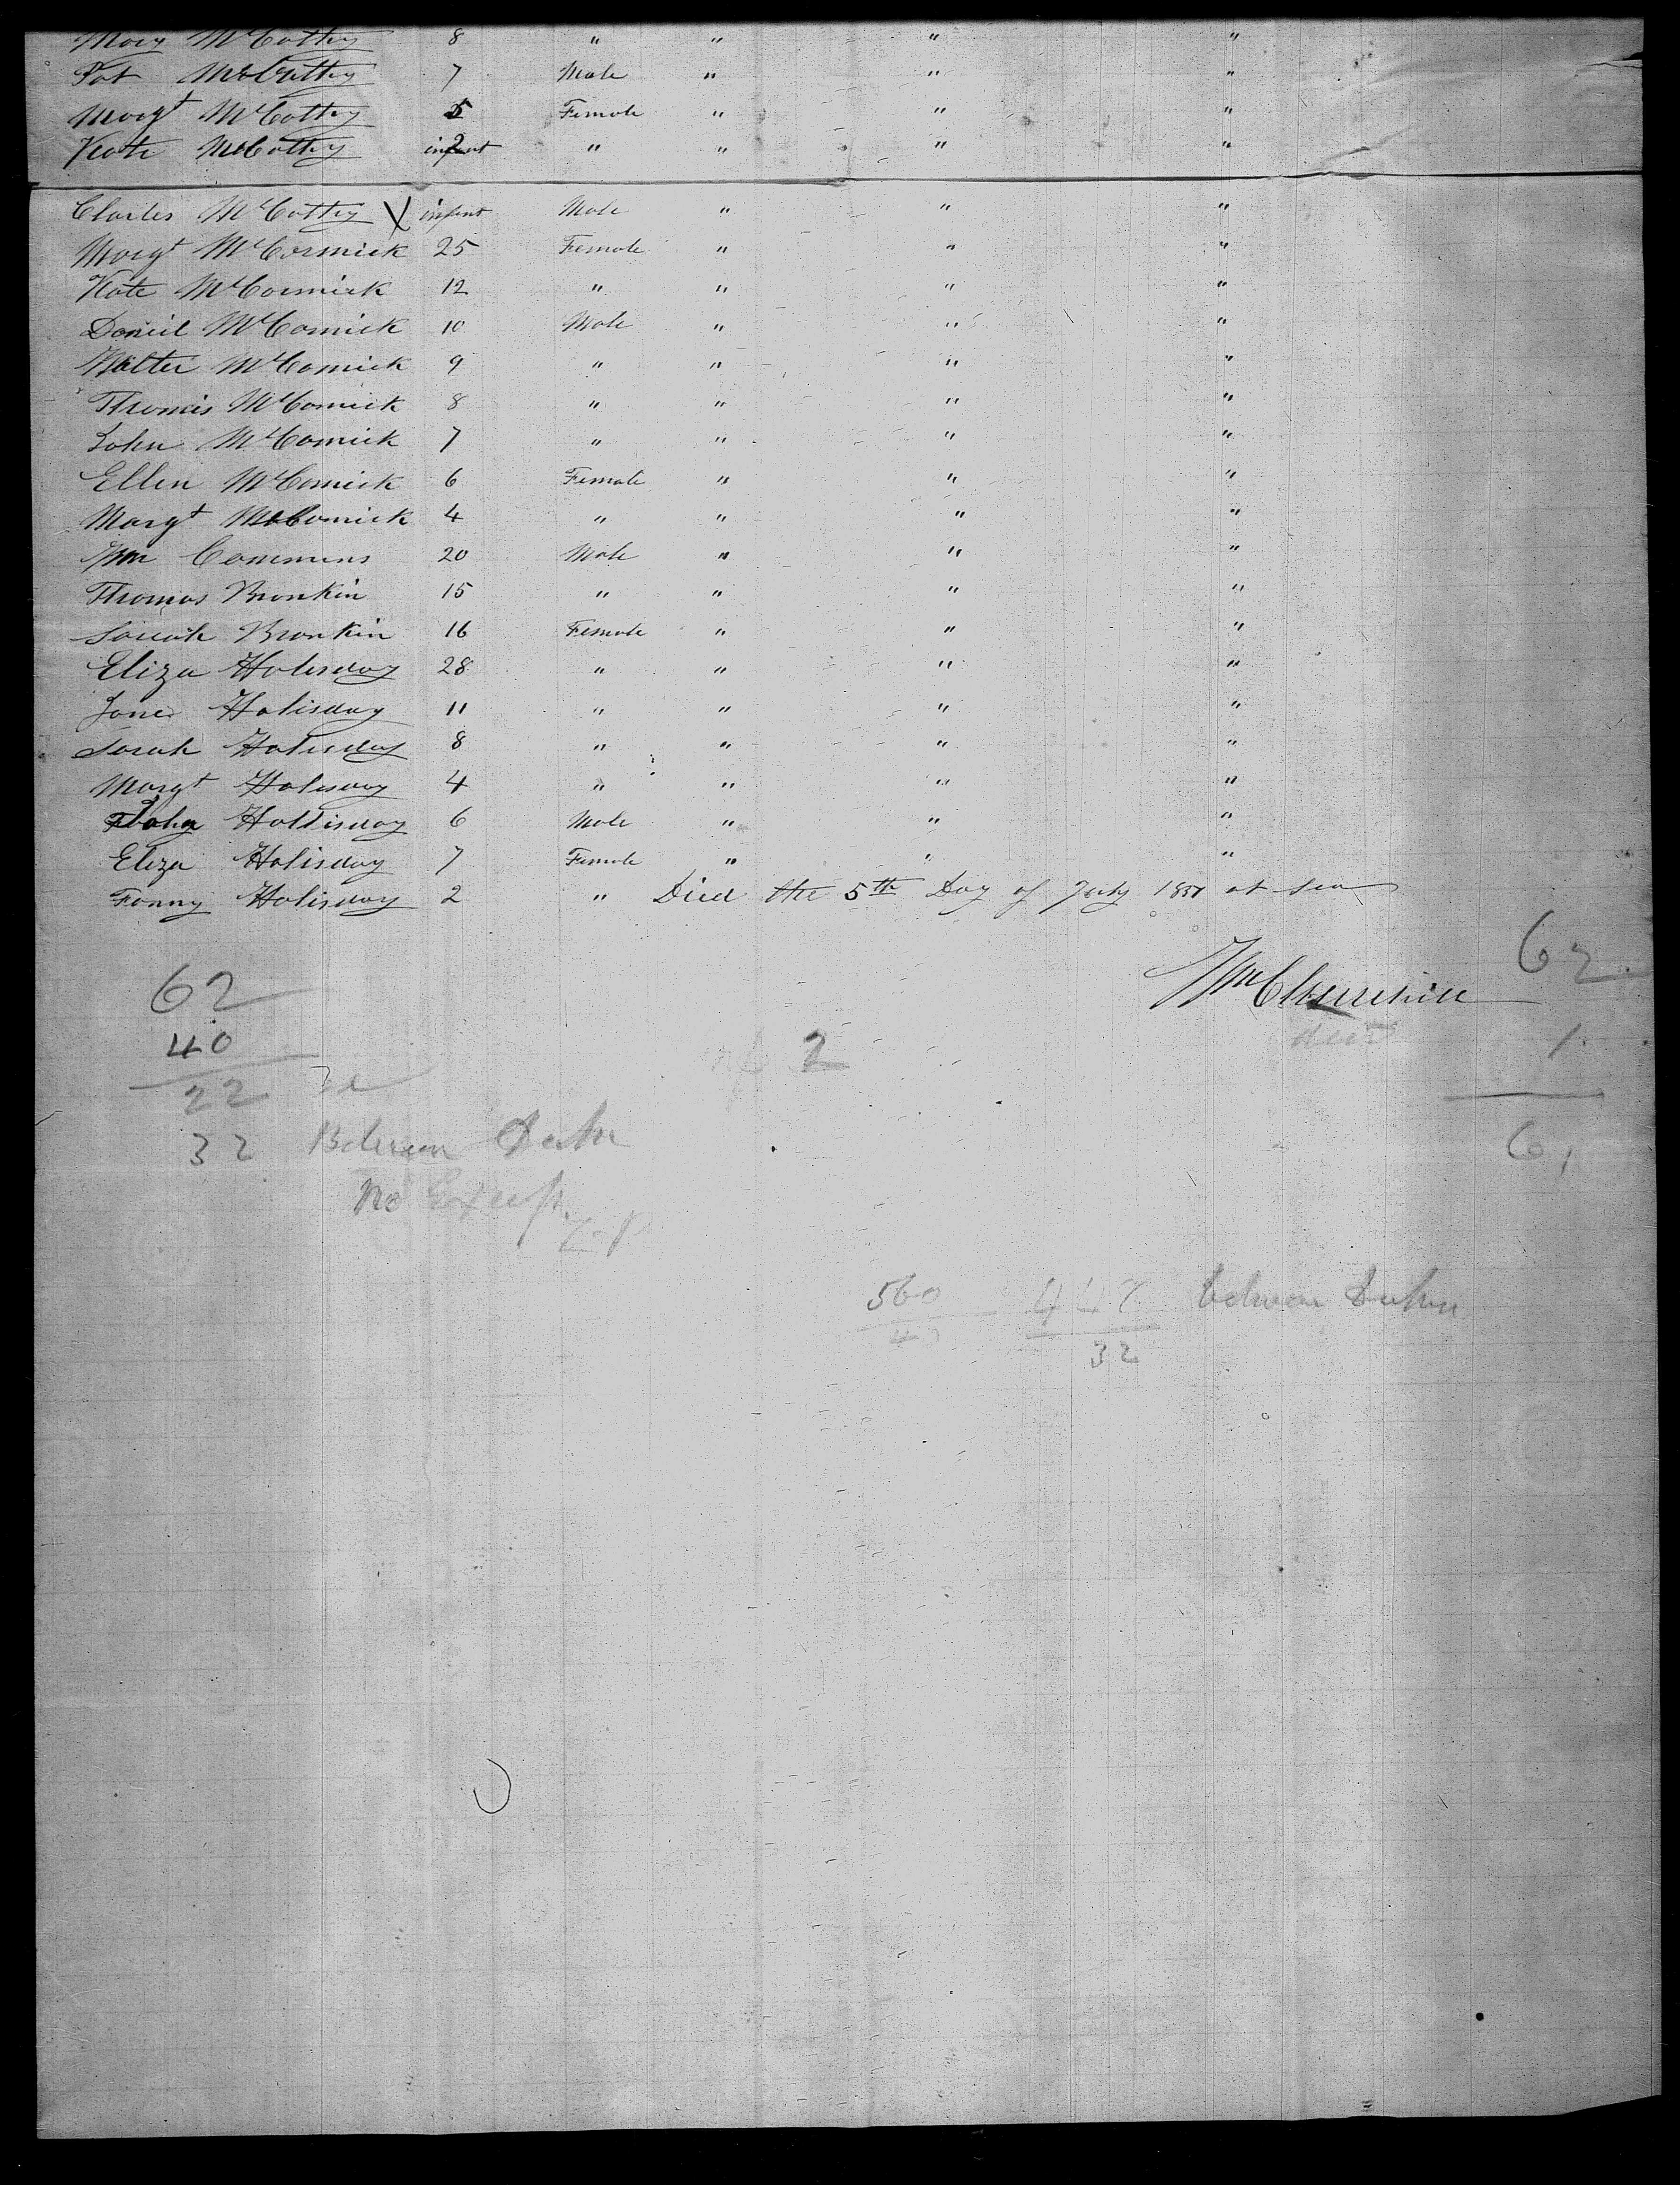 Mary McCathy 8 " " " "
Pat McCathy 7 Male " " "
Margt McCathy 5 Female " " "
Kate McCathy infant 2 " " " "
Charles McCathy X infent Male " " "
Margt McCormick 25 Female " " "
Kate McCormick 12 " " " "
Daniel McComick 10 Male " " "
Walter McComick 9 " " " "
Thomas McComick 8 " " " "
John McComick 7 " " " "
Ellen McComick 6 Female " " "
Margt McComick 4 " " " "
Wm Commins 20 Male " " "
Thomas Brankin 15 " " " "
Sarah Brankin 16 Female " " "
Eliza Holisday 28 " " " "
Jane Halisday 11 " " " "
Sarah Halisday 8 " " " "
Margt Halisday 4 " " " "
John Hallisday 6 Male " " "
Eliza Halisday 7 Female " " "
Fanny Halisday 2 " Died the 5th Day of July 1851 at sea
Wm
62
62
40
2
1
22
32 Between Decks
61
No
560 Between Decks
40 32